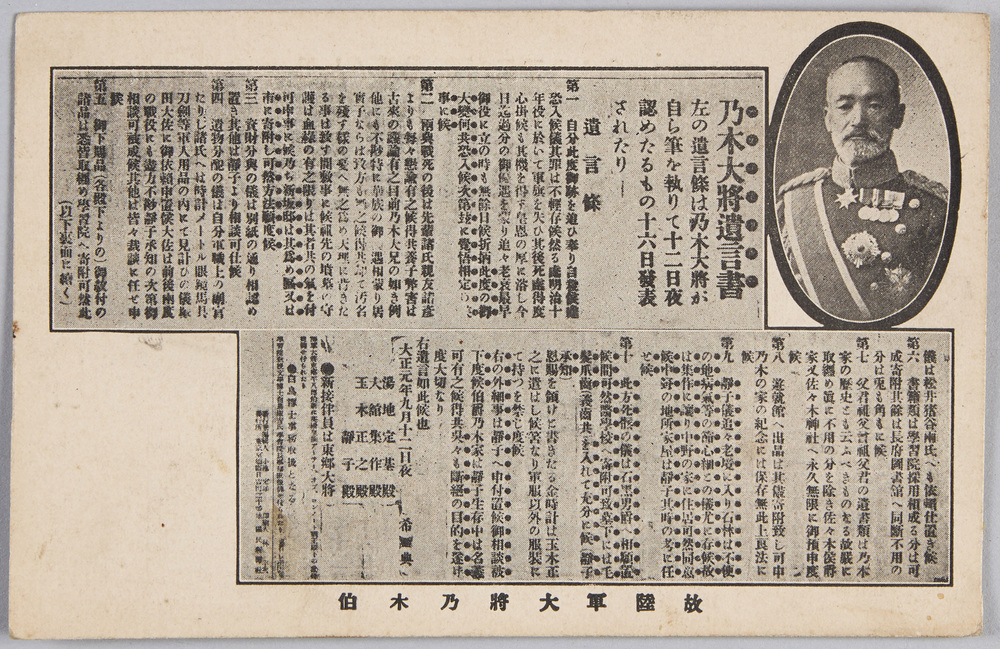 乃木大將遺言書
左の遺言條は乃木大將が
自ら筆を執りて十二日夜
認めたるもの十六日發表
されたり
遺言條
第一 自分此度御跡を追ひ奉り自殺候處
恐入候儀其罪は不輕存候然る處明治十
年役に於いて軍旗を失ひ其後死處得度
心掛候も其機を得ず皇恩の厚に浴し今
日迄過分の御優遇を蒙り追々老衰最早
御役に立の時も無餘日候折柄此度の御
大變何共恐入候次第茲に覺悟相定
事に候
第二 兩典戰死の後は先輩諸氏親友諸彦
よりも毎々懇諭有之候得共養子弊害は
古來の議論有之目前乃木大兄の如き例
他にも不尠特に華族の御
を殘す樣の憂へ無之爲め天理に背きた
る事は致す間敷事に候祖先の墳墓の守
護は血緣の有之限りは其者共の氣を付
可申事に候乃ち新坂邸は其爲め區又は
市に寄附し可然方法願度候
第三 資財分與の儀は別紙の通り相認め
置き其他は靜子より相談可仕候
第四 遺物分配の儀は自分軍職上の副官
たりし諸氏へは時計メートル眼鏡馬具
刀劍等軍人用品の內にて見計ひの儀塚
田大佐に御依頼申置候大佐は前後兩度
の戰役にも盡力不尠靜子承知の次第御
相談可被成候其他は皆々裁談に任せ申
候
第五 御下賜品(各殿下よりの)御紋付の
諸品は悉皆取纏め學習院へ寄附可然此
(以下裏面に續く)
儀は松井猪谷兩氏へも依頼仕置き候
第六 書籍類は學習院採用相成る分は可
成寄附其餘は長府圖書館へ同斷不用の
分は兎も角もに候
第七 父君祖父曾祖父君の遺書類は乃木
家の歷史とも云ふべきものなる故嚴に
取纏め眞に不用の分を除き佐々木侯爵
家又佐々木神社へ永久無限に御預申度
候
第八 遊就館へ出品は其儘寄附致し可申
乃木の家の紀念には保存無此上良法に
候
第九 靜子儀追々老境に入り石林は不便
の地病氣等の節心細との儀尤に存候故
は集作に讓り中野の家に住居可然同意
候中野の地所家屋は靜子其時の考に任
せ候
第十 此方死骸の儀は石黑男爵へ相願置
候間可然醫學校へ寄附可致墓下には毛
髮爪齒(義齒共)を入れて充分に候(靜子
承知)
恩賜を頒けと書きたる金時計は玉木正
之に遣はし候筈なり軍服以外の服裝に
て持つを禁じ度候
右の外細事は靜子へ申付置候御相談被
下度候伯爵乃木家は靜子生存中は名義
可有之候得共呉々も斷絕の目的を遂げ
度大切なり
右遺言如此候也
大正元年九月十二日夜
希典
湯地定基殿
大館集作殿
玉木正之殿
靜子殿
新接伴員は東鄕大將
白鳥博士事務取扱となる
故陸軍大將乃木伯